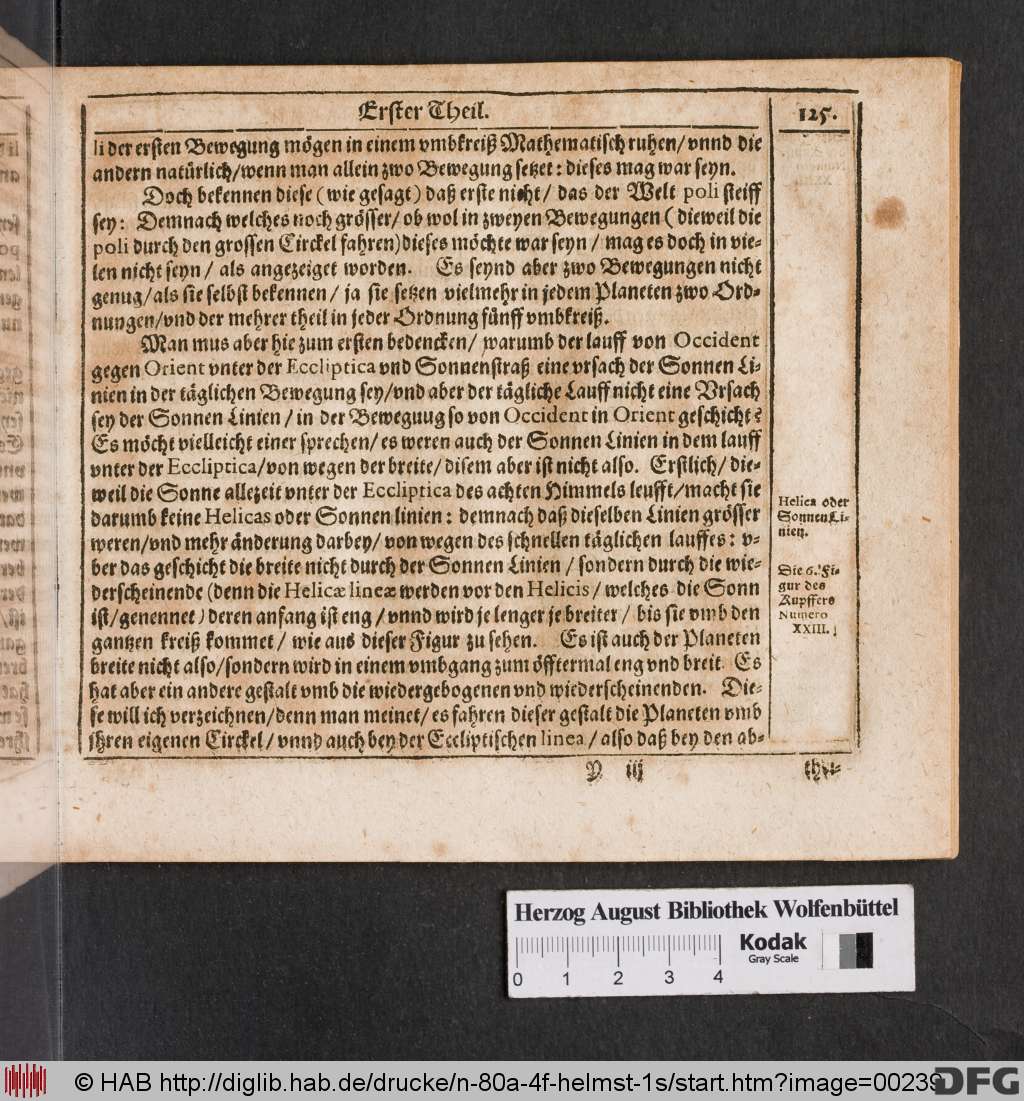 Erster Theil.
125.
li der ersten Bewegung mögen in einem vmbkreiß Mathematisch ruhen/ vnnd die
andern natürlich/wenn man allein zwo Bewegung setzet: dieses mag war seyn.
Doch bekennen diese (wie gesagt) daß erste nicht/ das der Welt poli steiff
sey: Demnach welches noch grösser/ ob wol in zweyen Bewegungen (dieweil die
poli durch den grossen Circkel fahren)dieses möchte war seyn/ mag es doch in vie-
len nicht seyn/ als angezeiget worden. Es seynd aber zwo Bewegungen nicht
genug/als sie selbst bekennen/ ja sie setzen vielmehr in jedem Planeten zwo Ord-
nungen/vnd der mehrer theil in jeder Ordnung fünff vmbkreiß.
Man mus aber hie zum ersten bedencken/ warumb der lauff von Occident
gegen Orient vnter der Eccliptica vnd Sonnenstraß eine vrsach der Sonnen Li-
nien in der täglichen Bewegung sey/vnd aber der tägliche Lauff nicht eine Vrsach
sey der Sonnen Linien/ in der Beweguug so von Occident in Orient geschicht?
Es möcht vielleicht einer sprechen/ es weren auch der Sonnen Linien in dem lauff
vnter der Eccliptica/von wegen der breite/ disem aber ist nicht also. Erstlich/ die-
weil die Sonne allezeit vnter der Eccliptica des achten Himmels leufft/macht sie
darumb keine Helicas oder Sonnen linien: demnach daß dieselben Linien grösser
weren/vnd mehr änderung darbey/ von wegen des schnellen täglichen lauffes: v-
ber das geschicht die breite nicht durch der Sonnen Linien/ sondern durch die wie-
derscheinende (denn die Helicæ lineæ werden vor den Helicis/ welches die Sonn
ist/genennet) deren anfang ist eng/ vnnd wird je lenger je breiter/ bis sie vmb den
gantzen kreiß kommet/ wie aus dieser Figur zu sehen. Es ist auch der Planeten
breite nicht also/sondern wird in einem vmbgang zum öfftermal eng vnd breit. Es
hat aber ein andere gestalt vmb die wiedergebogenen vnd wiederscheinenden. Die-
se will ich verzeichnen/denn man meinet/ es fahren dieser gestalt die Planeten vmb
ihren eigenen Circkel/ vnnd auch bey der Eccliptischen linea/ also daß bey den ab-
Helica oder
Sonnen Li-
nien.
Die 6. Fi-
gur des
Kupffers
Numero
XXIII.
iij
Herzog August Bibliothek Wolfenbüttel
Kodak
Gray Scale
0 1 2 3 4
© HAB http://diglib.hab.de/drucke/n-80a-4f-helmst-1s/start.htm?image=00239
DFG